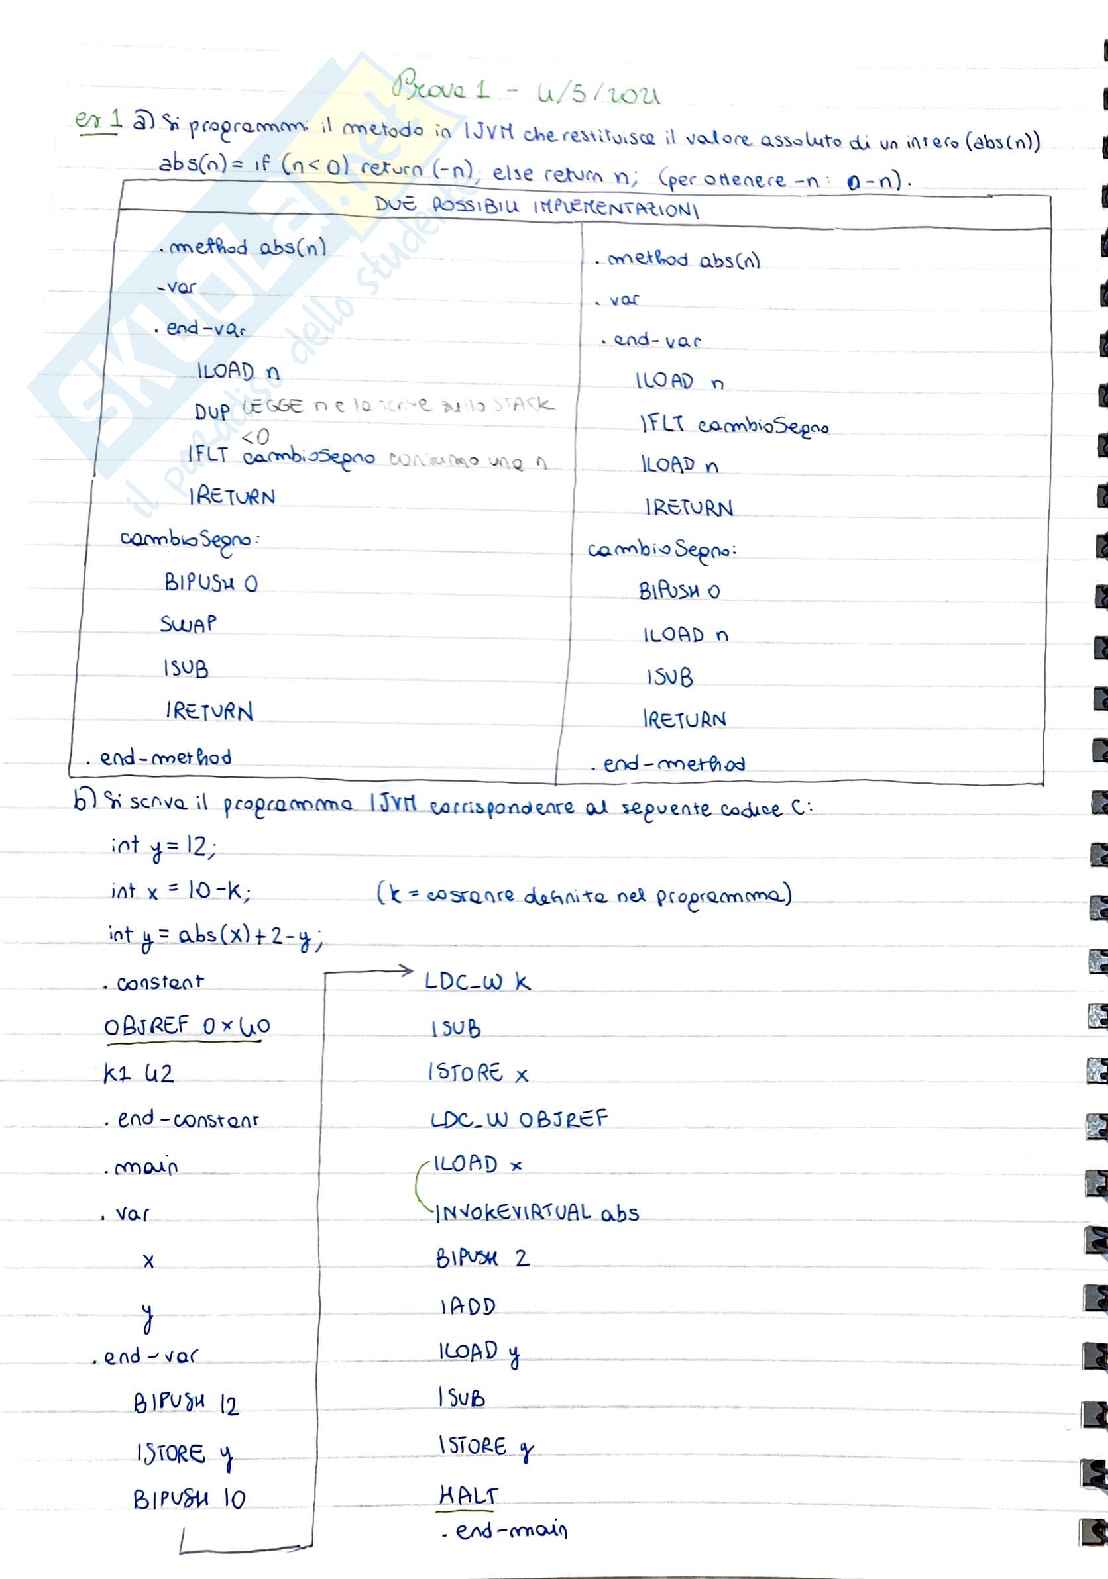 Prova 1 - 4/5/2021
es 1 a) Si programmi il metodo in IJVM che restituisce il valore assoluto di un intero (abs(n))
abs(n) = if (n<0) return (-n), else return n; (per ottenere -n: 0-n).
DUE POSSIBILI IMPLEMENTAZIONI
.method abs(n)
-var
.end-var
ILOAD n
DUP LEGGE n e lo scrive sullo STACK
<0
IFLT cambioSegno consumo una n
IRETURN
cambioSegno:
BIPUSH 0
SWAP
ISUB
IRETURN
.end-method
.method abs(n)
.var
.end-var
ILOAD n
IFLT cambioSegno
ILOAD n
IRETURN
cambioSegno:
BIPUSH 0
ILOAD n
ISUB
IRETURN
.end-method
b) Si scriva il programma IJVM corrispondente al seguente codice C:
int y = 12;
int x = 10-K; (k = costante definita nel programma)
int y = abs(x)+2-y;
.constant
OBJREF 0x40
K1 42
.end-constant
.main
.var
x
y
.end-var
BIPUSH 12
ISTORE y
BIPUSH 10
LDC_W K
ISUB
ISTORE x
LDC_W OBJREF
ILOAD x
INVOKEVIRTUAL abs
BIPUSH 2
IADD
ILOAD y
ISUB
ISTORE y
HALT
.end-main
SKUOLA.net
il paradiso dello studente